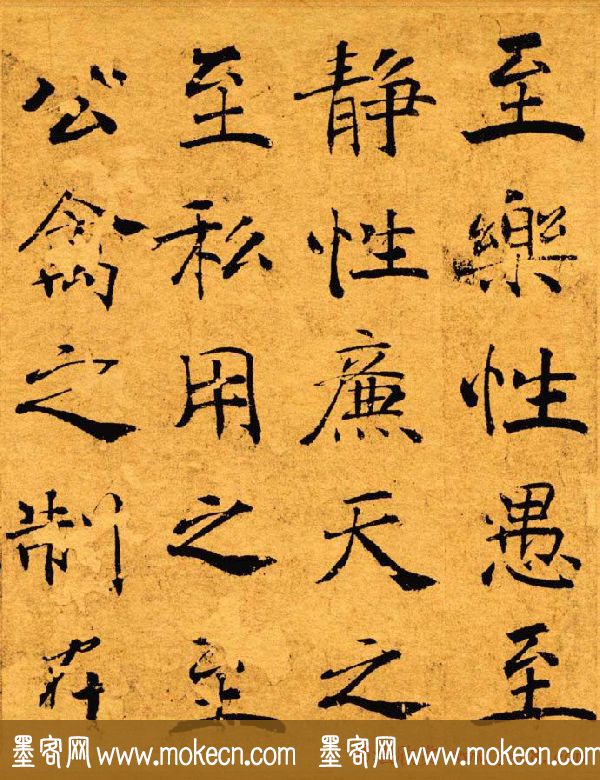 至樂性愚至
靜性廉天之
至私用之至
公禽之制
墨客网 www.mokecn.com 墨客网 www.mokecn.com